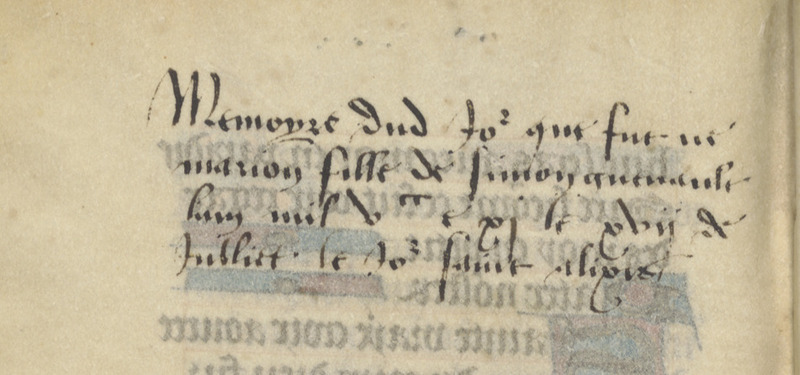 Memoyre dud Jor que fut ne
marion fille de simon guenault
lan mil v cc e xj le xvij de
Julliet le Jor saint alixis